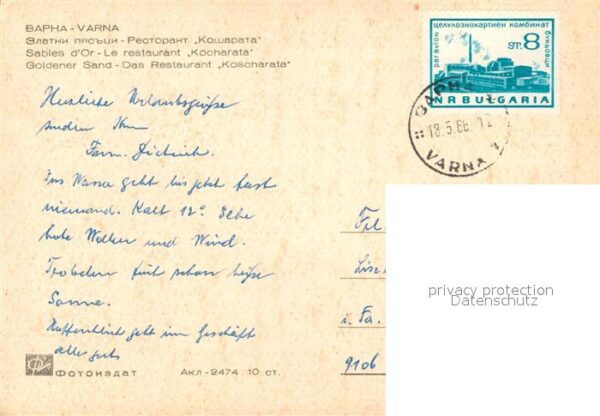 ВАРНА - VARNA
Златни пясъци - Ресторант „Кошарата"
Sables d'Or - Le restaurant „Kocharata"
Goldener Sand - Das Restaurant „Koscharata"
par avion
целулознохартиен комбинат
ST. 8
NR BULGARIA
ВАРНА
18.5.66. 12
VARNA 1
Herzliche Urlaubsgrüße
senden Ihnen
Fam. Dietrich.
Ins Wasser geht bis jetzt fast
niemand. Kalt 12°. Sehr
hohe Wolken und Wind.
Trotzdem früh schon heiße
Sonne.
Hoffentlich geht im Geschäft
alles gut.
Frl
i. Fa.
9106
privacy protection
Datenschutz
Фотоиздат
Акл - 2474 10 ст.